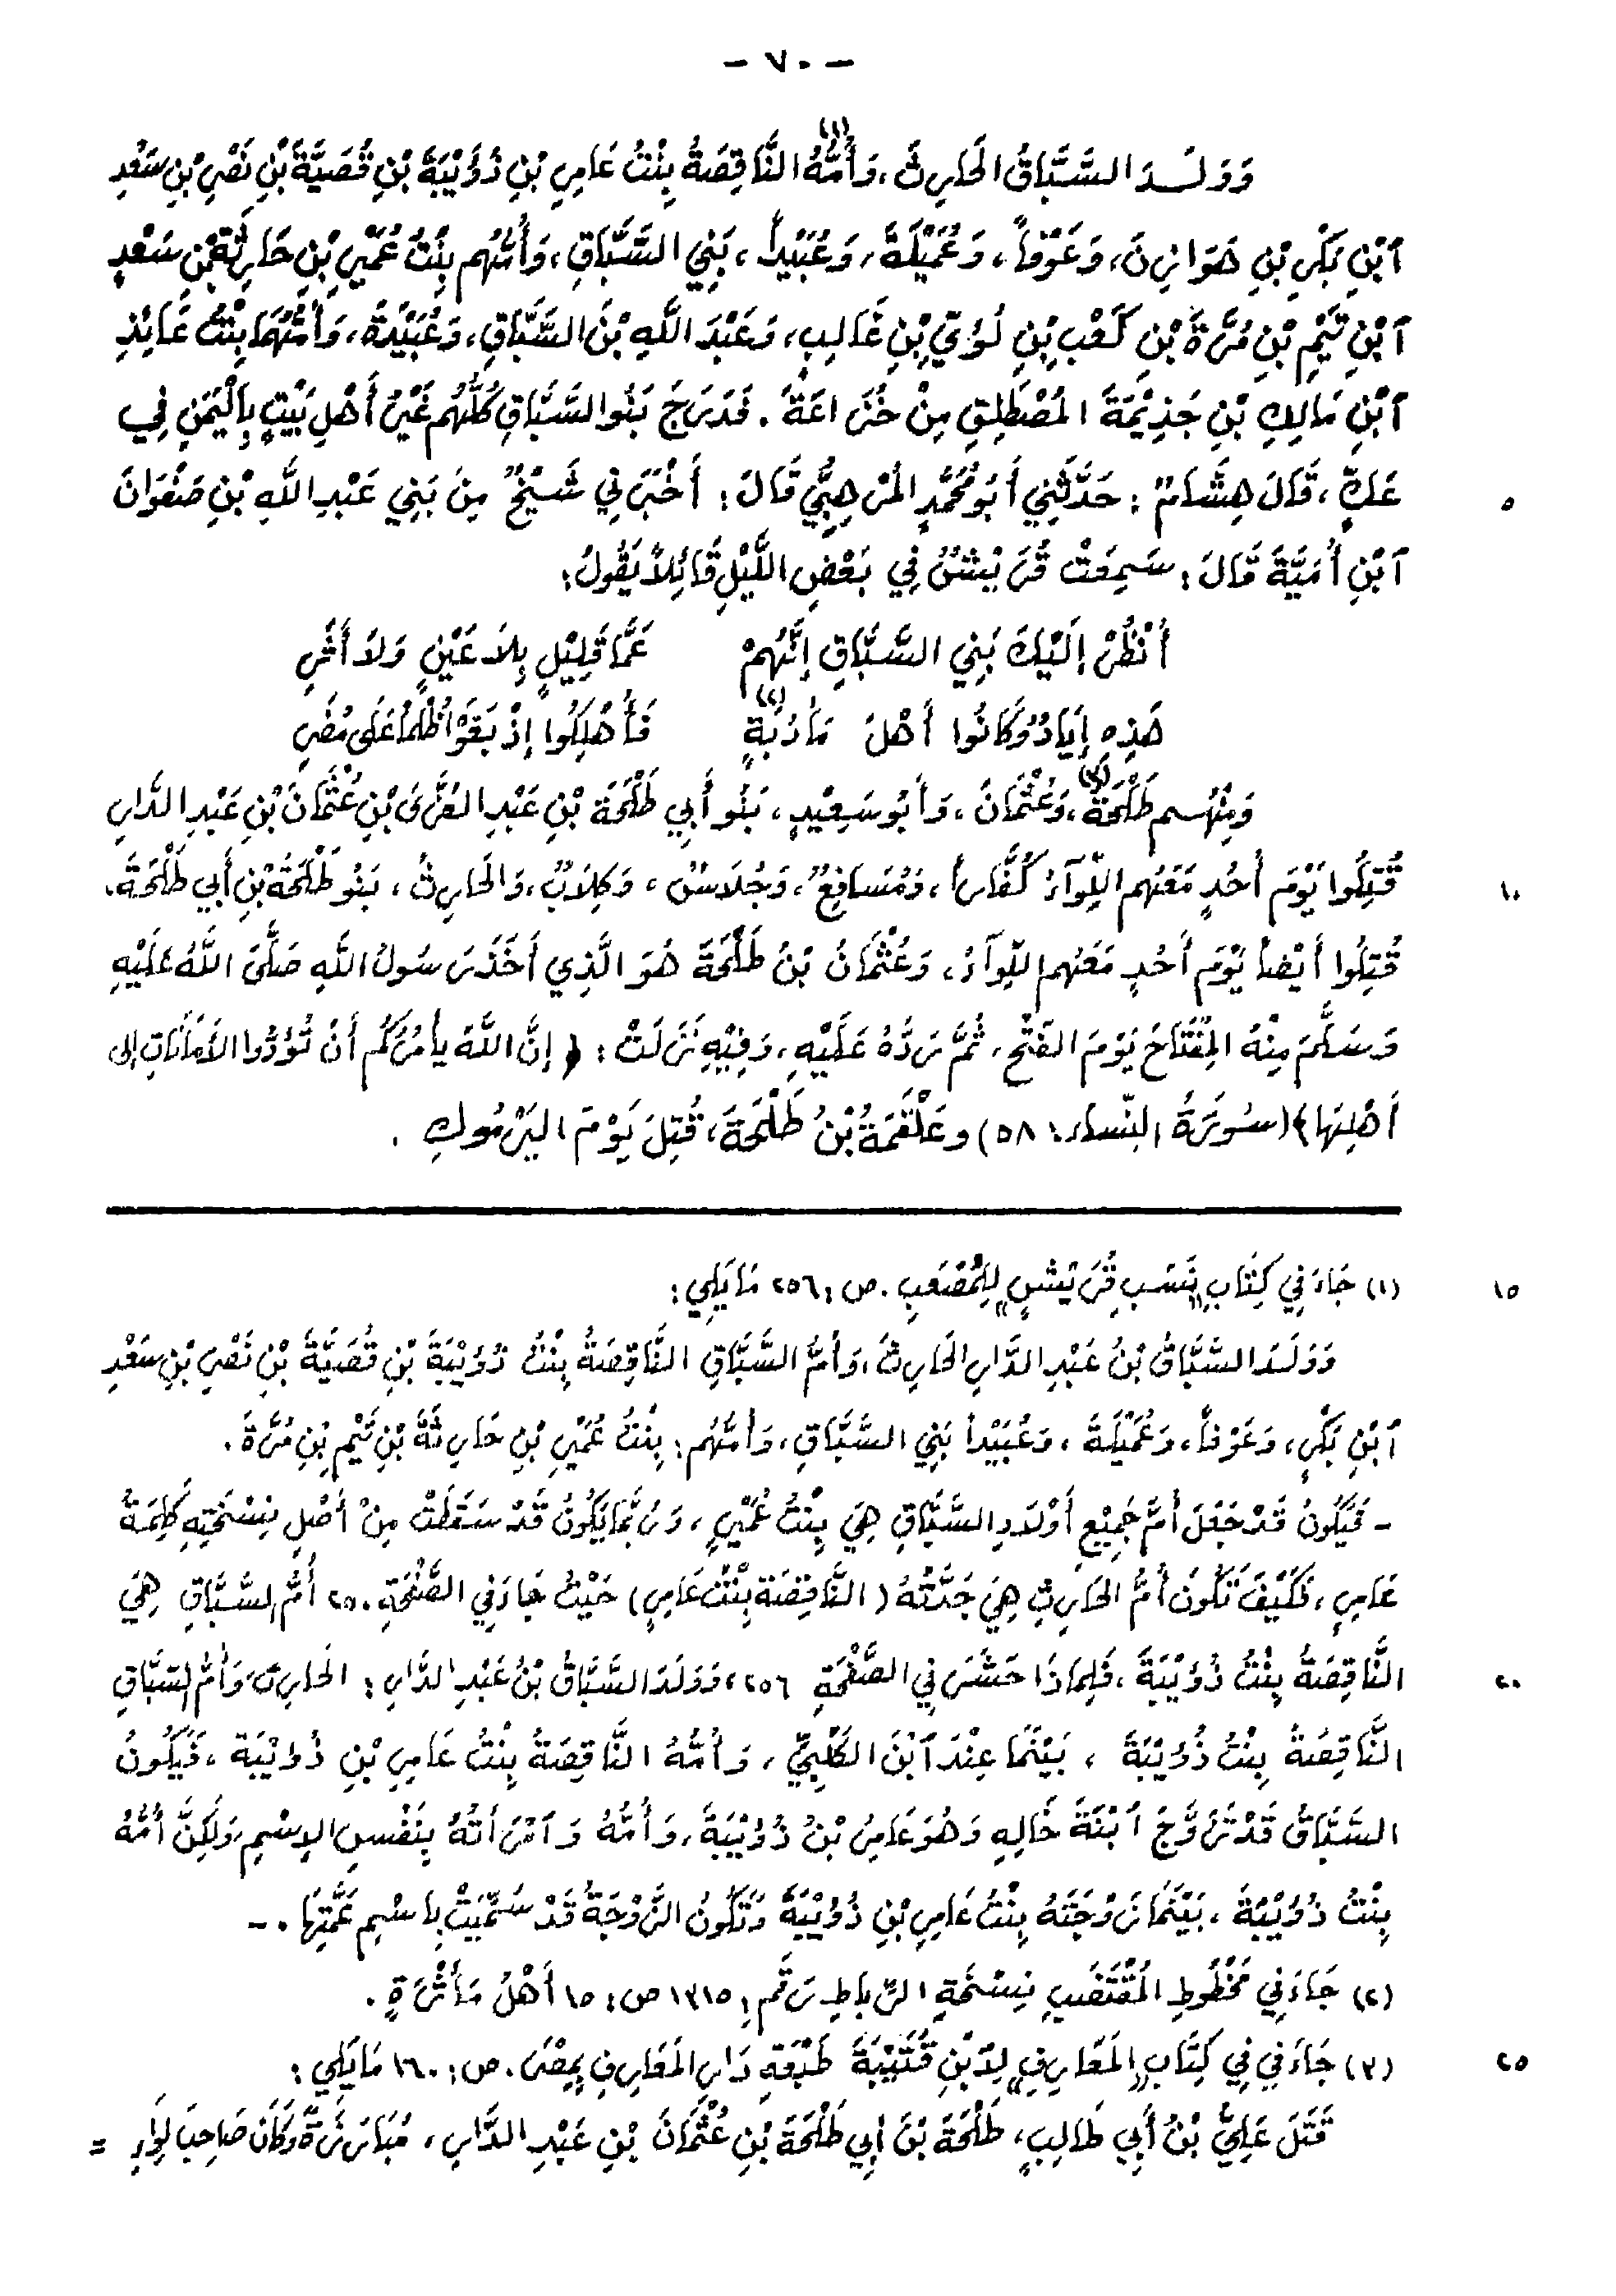 - ٧٠ -
وَوَلَدَ السَّبَّاقُ الحَارِثَ، وَأُمُّهُ(١) النَّاقِصَةُ بِنْتُ عَامِرِ بْنِ ذُؤَيْبَةَ بْنِ قُصَيَّةَ بْنِ نَصْرِ بْنِ سَعْدِ
آبْنِ بَكْرِ بْنِ هَوَازِنَ، وَعَوْفاً، وَعُمَيْلَةَ، وَعُبَيْداً، بَنِي السَّبَّاقِ، وَأُمُّهُم بِنْتُ عُمَيْرِ بْنِ حَارِثَةَ بْنِ سَعْدِ
آبْنِ تَيْمِ بْنِ مُرَّةَ بْنِ كَعْبِ بْنِ لُؤَيِّ بْنِ غَالِبٍ، وَعَبْدَ اللَّهِ بْنَ السَّبَّاقِ، وَعُبَيْدَةَ، وَأُمُّهُمَا بِنْتُ عَائِذِ
آبْنِ مَالِكِ بْنِ جَذِيْمَةَ المُصْطَلِقِ مِنْ خُزَاعَةَ. فَدَرَجَ بَنُو السَّبَّاقِ كُلُّهُم غَيْرُ أَهْلِ بَيْتٍ بِالْيَمَنِ فِي
عَكٍّ، قَالَ هِشَامٌ: حَدَّثَنِي أَبُو مُحَمَّدٍ المُرْهِبِيُّ قَالَ: أَخْبَرَنِي شَيْخٌ مِنْ بَنِي عَبْدِ اللَّهِ بْنِ صَفْوَانَ
٥
آبْنِ أُمَيَّةَ قَالَ: سَمِعَتْ قُرَيْشٌ فِي بَعْضِ اللَّيْلِ قَائِلاً يَقُولُ:
أُنْظُرْ إِلَيْكَ بَنِي السَّبَّاقِ إِنَّهُمْ عَمَّا قَلِيْلٍ بِلاَ عَيْنٍ وَلاَ أَثَرِ
هَذِهِ إِيَادٌ وَكَانُوا أَهْلَ مَأْدُبَةٍ(٢) فَأُهْلِكُوا إِذْ بَغَوْا ظُلْماً عَلَى مُضَرِ
وَمِنْهُم طَلْحَةُ(٣)، وَعُثْمَانُ، وَأَبُو سَعِيْدٍ، بَنُو أَبِي طَلْحَةَ بْنِ عَبْدِ العُزَّى بْنِ عُثْمَانَ بْنِ عَبْدِ الدَّارِ
قُتِلُوا يَوْمَ أُحُدٍ مَعَهُم اللِّوَآءُ كُفَّاراً، وَمُسَافِعٌ، وَجُلاَسٌ، وَكِلاَبٌ، وَالحَارِثُ، بَنُو طَلْحَةَ بْنِ أَبِي طَلْحَةَ.
١٠
قُتِلُوا أَيْضاً يَوْمَ أُحُدٍ مَعَهُم اللِّوَآءُ، وَعُثْمَانُ بْنُ طَلْحَةَ هُوَ الَّذِي أَخَذَ رَسُولُ اللَّهِ صَلَّى اللَّهُ عَلَيْهِ
وَسَلَّمَ مِنْهُ المِفْتَاحَ يَوْمَ الفَتْحِ، ثُمَّ رَدَّهُ عَلَيْهِ، وَفِيْهِ نَزَلَتْ: ﴿ إِنَّ اللَّهَ يأْمُرُكُم أَنْ تُؤَدُّوا الأَمَانَاتِ إلى
أَهْلِهَا﴾ (سُورَةُ النِّساء: ٥٨) وعَلْقَمَةُ بْنُ طَلْحَةَ، قُتِلَ يَوْمَ اليَرْمُوكِ.
(١) جَاءَ فِي كِتَابِ «نَسَبِ قُرَيْشٍ» لِلْمُصْعَبِ. ص: ٢٥٦ مَا يَلِي:
١٥
وَوَلَدَ السَّبَّاقُ بْنُ عَبْدِ الدَّارِ الحَارِثَ، وَأُمُّ السَّبَّاقِ النَّاقِصَةُ بِنْتُ ذُؤَيْبَةَ بْنِ قُصَيَّةَ بْنِ نَصْرِ بْنِ سَعْدِ
آبْنِ بَكْرٍ، وَعَوْفاً، وَعُمَيْلَةَ، وَعُبَيْداً بَنِي السَّبَّاقِ، وَأُمُّهُم: بِنْتُ عُمَيْرِ بْنِ حَارِثَةَ بْنِ تَيْمِ بْنِ مُرَّةَ.
- فَيَكُونُ قَدْ جَعَلَ أُمَّ جَمِيْعِ أَوْلاَدِ السَّبَّاقِ هِيَ بِنْتُ عُمَيْرٍ، وَرُبَّمَا يَكُونُ قَدْ سَقَطَتْ مِنْ أَصْلِ نِسْخَتِهِ كَلِمَةُ
عَامِرٍ، فَكَيْفَ تَكُونُ أُمُّ الحَارِثِ هِيَ جَدَّتُهُ (النَّاقِصَة بِنْتُ عَامِرٍ) حَيْثُ جَاءَ فِي الصَّفْحَةِ ٢٥٠ أُمُّ السَّبَّاقِ هِيَ
النَّاقِصَةُ بِنْتُ ذُؤَيْبَةَ، فَلِمَاذَا حَشَرَ فِي الصَّفْحَةِ ٢٥٦، وَوَلَدَ السَّبَّاقُ بْنُ عَبْدِ الدَّارِ: الحَارِثَ وَأُمُّ السَّبَّاقِ
٢٠
النَّاقِصَةُ بِنْتُ ذُؤَيْبَةَ، بَيْنَمَا عِنْدَ آبْنَ الكَلْبِيِّ، وَأُمُّهُ النَّاقِصَةُ بِنْتُ عَامِرِ بْنِ ذُؤَيْبَة، فَيَكُونُ
السَّبَّاقُ قَدْ تَزَوَّجَ آبْنَةَ خَالِهِ وَهُوَ عَامِرُ بْنُ ذُؤَيْبَةَ، وَأُمُّهُ وَآمْرَأَتُهُ بِنَفْسِ الإسْمِ وَلَكِنَّ أُمَّهُ
بِنْتُ ذُؤَيْبَةَ، بَيْنَمَا زَوْجَتَهُ بِنْتُ عَامِرِ بْنِ ذُؤَيْبَةَ وَتَكُونُ الزَّوْجَةُ قَدْ سُمِّيَتْ بِاسْمِ عَمَّتِهَا. -
(٢) جَاءَ فِي مَخْطُوطِ المُقْتَضَبِ نِسْخَةِ الرِّباطِ رَقَم: ١٣١٥ ص: ١٥ أَهْلُ مَأْثَرَةٍ.
(٣) جَاءَ فِي فِي كِتَابِ «المَعَارِفِ» لِآبْنِ قُتَيْبَةَ طَبْعَةِ دَارِ المَعَارِفِ بِمِصْرَ. ص: ١٦٠ مَا يَلِي:
٢٥
قَتَلَ عَلِيُّ بْنُ أَبِي طَالِبٍ، طَلْحَةَ بْنَ أَبِي طَلْحَةَ بْنِ عُثْمَانَ بْنِ عَبْدِ الدَّارِ، مُبَارَزَةً وَكَانَ صَاحِبَ لِوَاءِ =